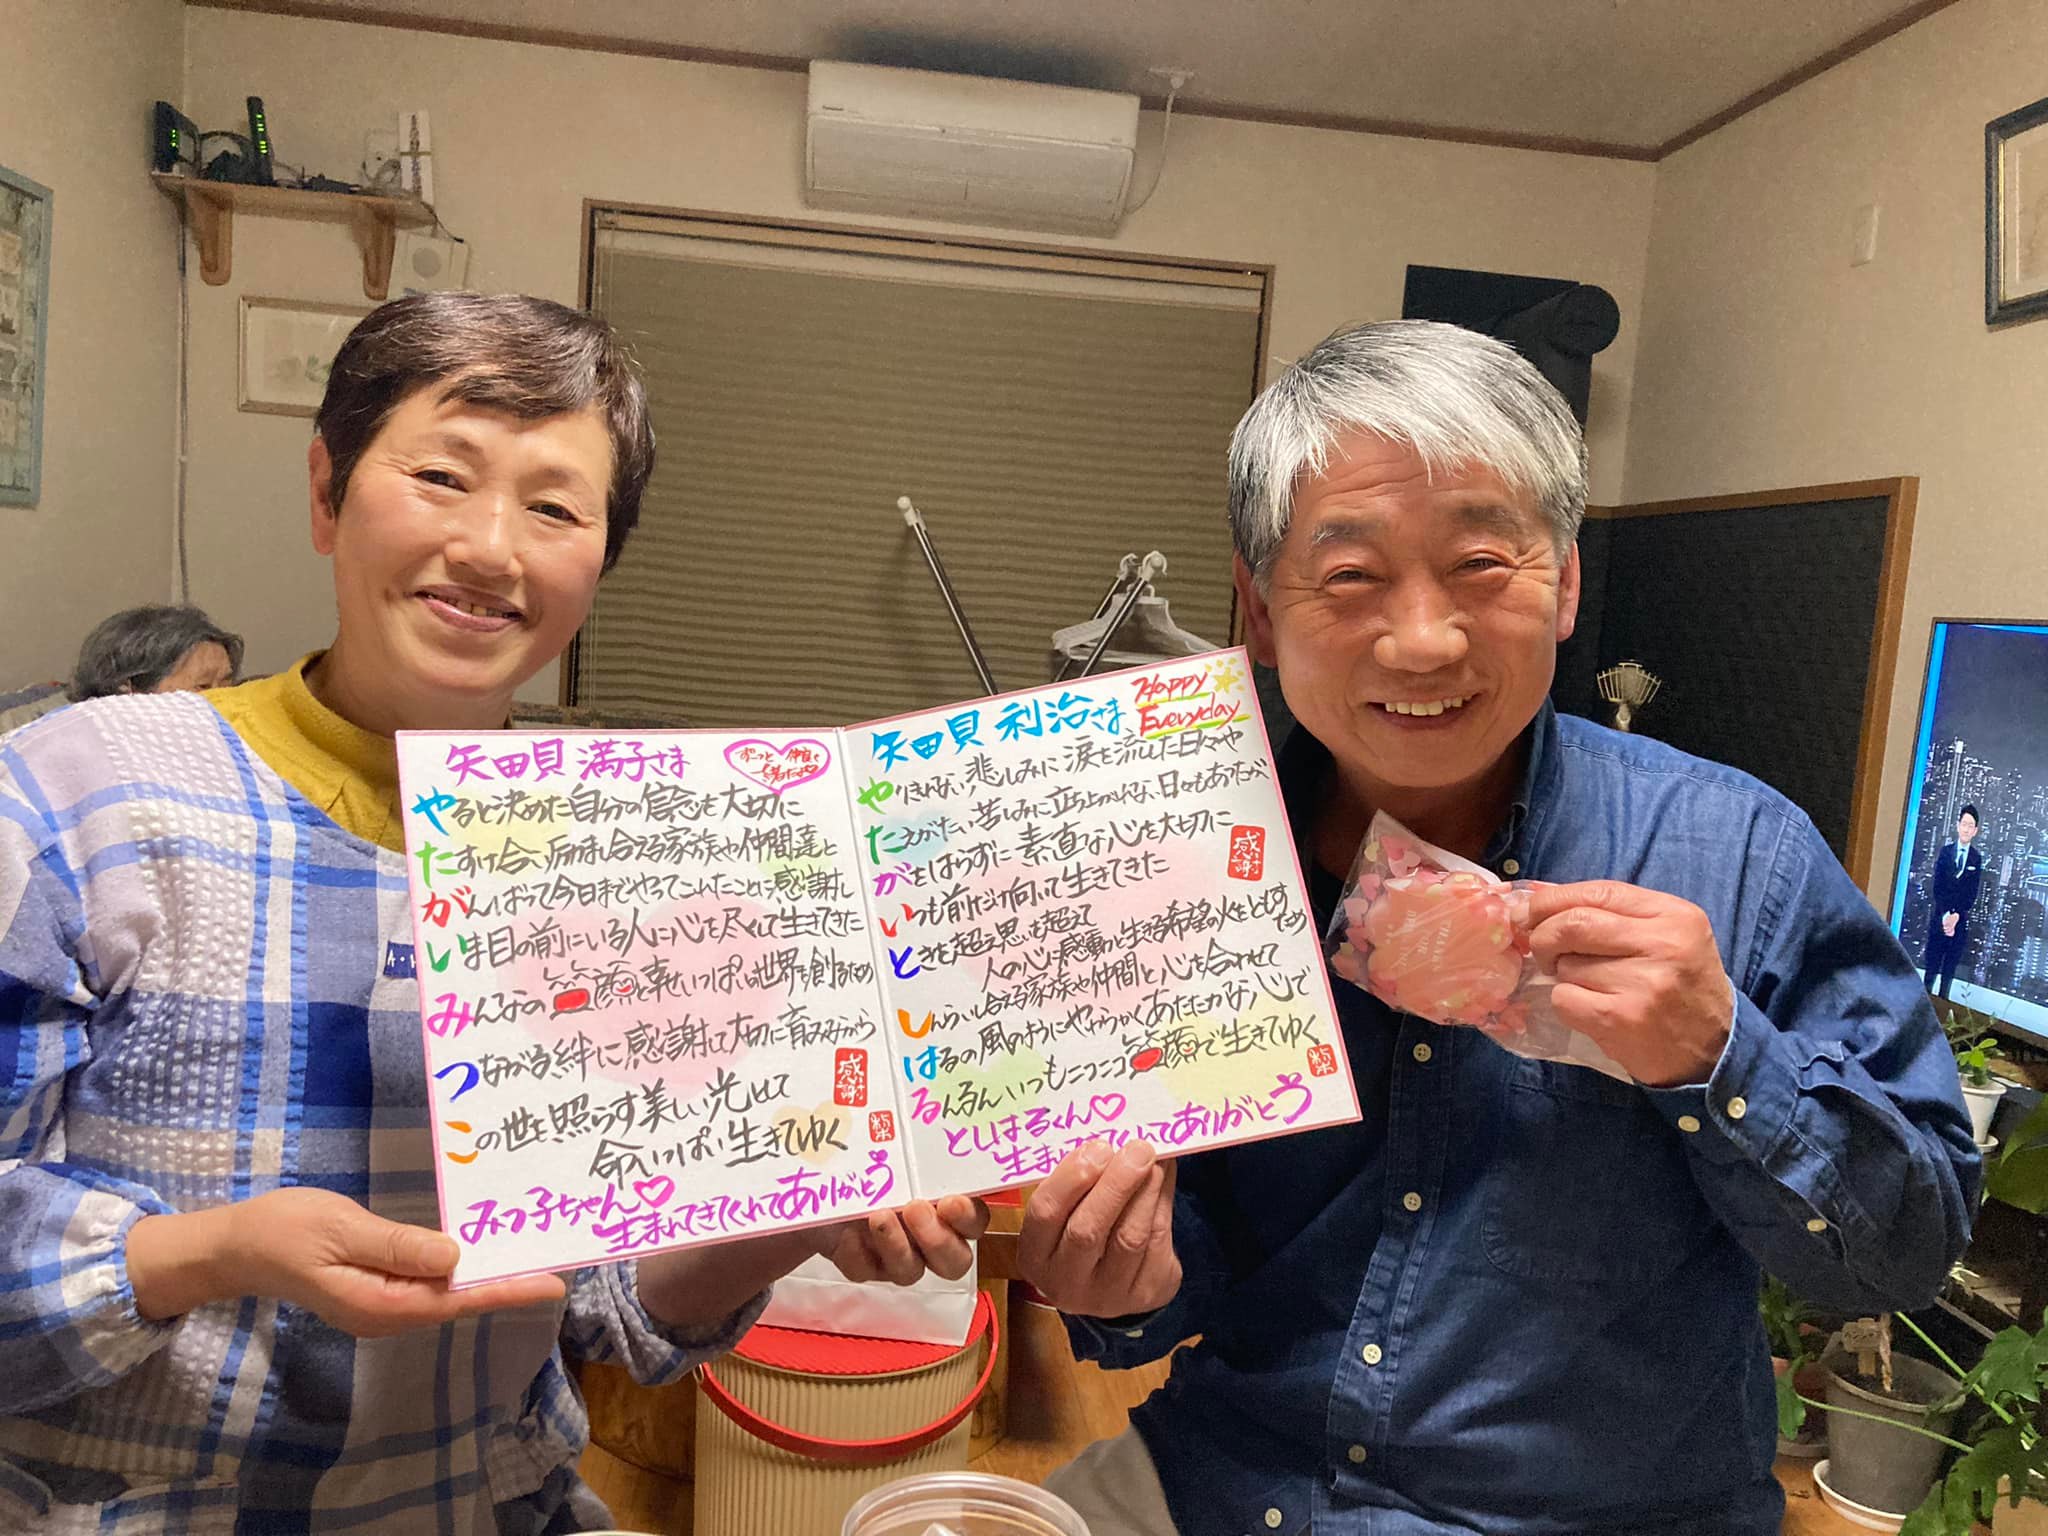 矢田貝 満子さま
ずーっと 仲良く
一緒だよ♡
やると決めた自分の信念を大切に
たすけ合い励まし合える家族や仲間達と
がんばって今日までやってこれたことに感謝し
いま目の前にいる人に心を尽くして生きてきた
みんなの笑顔と幸せいっぱいの世界を創るため
つながる絆に感謝して大切に育みながら
この世を照らす美しい光として
命いっぱい生きてゆく
感謝
みつ子ちゃん♡
生まれてきてくれてありがとう
矢田貝 利治さま
Happy
Everyday
やりきれない悲しみに涙を流した日々や
たえがたい苦しみに立ち上がれない日々もあったが
がをはらずに素直な心を大切に
いつも前だけ向いて生きてきた
ときを超え思いを超えて
人の心に感動と生きる希望の火をともすため
しんらいし合える家族や仲間と心を合わせて
はるの風のようにやわらかくあたたかな心で
るんるんいつもニコニコ笑顔で生きてゆく
感謝
としはるくん♡
生まれてきてくれてありがとう
THANK
YOU
Panasonic